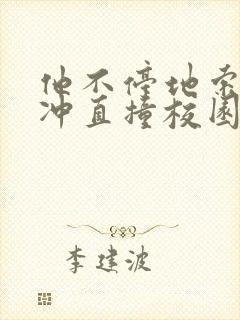 他不停地索
冲直撞校园
李建波